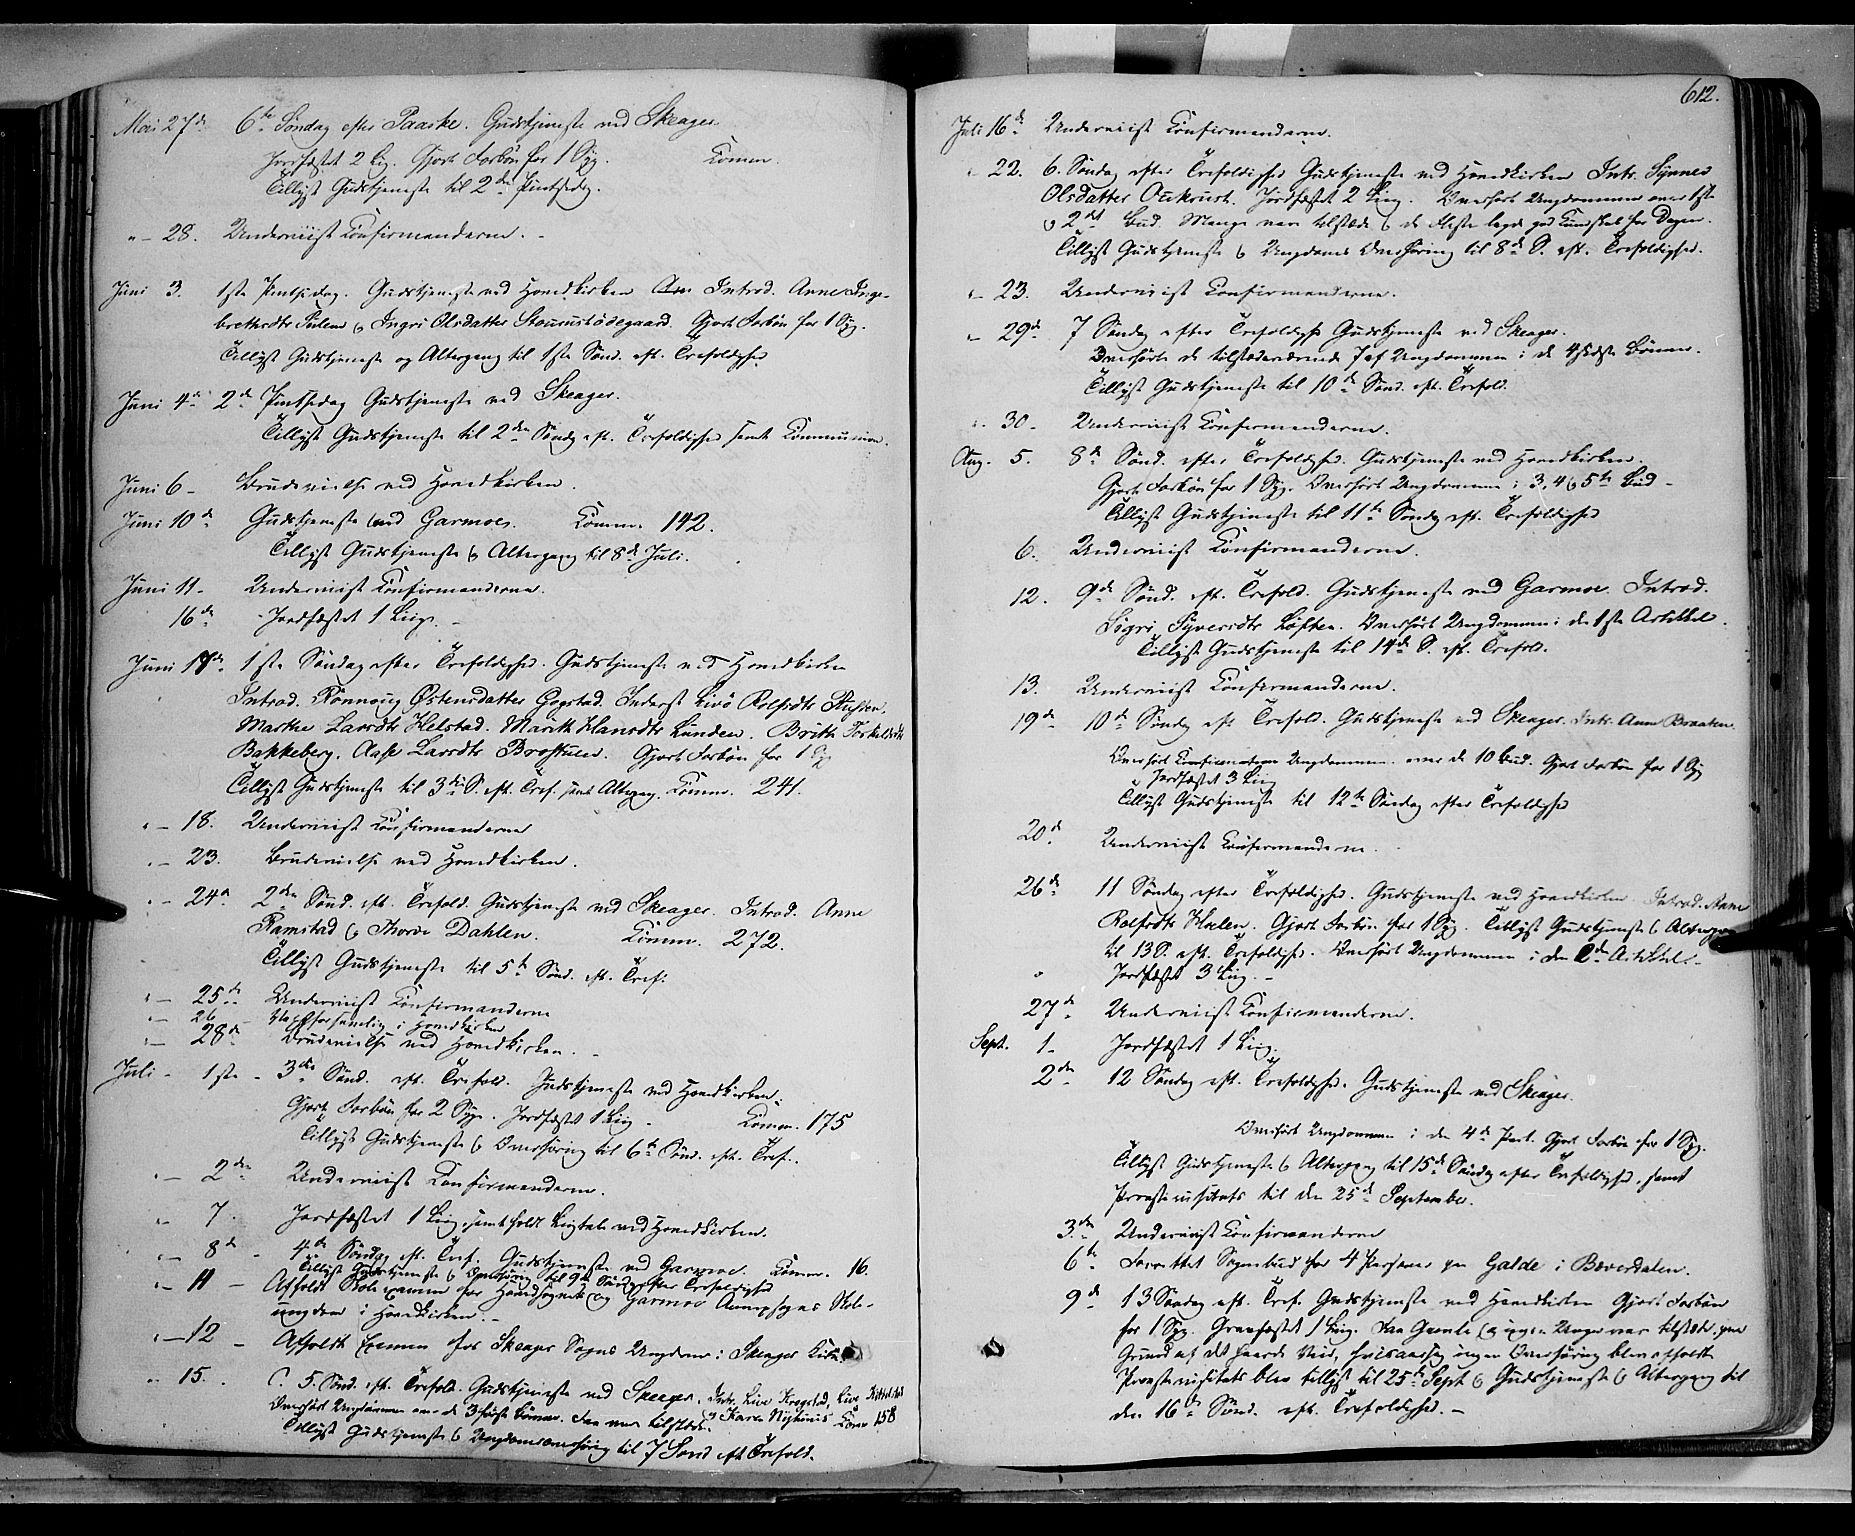 Mai 27de 6te Søndag efter Paaske. Gudstjeneste ved Skeager.
Jordfæstet 2 Lig. Gjort Forbøn for 1 Syg. Komm.
Tillyst Gudstjeneste til 2den Pintsedag.
"– 28. Underviist Konfirmanderne. –
Juni 3. 1ste Pintsedag. Gudstjeneste ved Hovedkirken Introd. Anne Inge-
brethsdtr Ingri Olsdatter Gjort Forbøn for 1 Syg.
Tillyst Gudstjeneste og Altergang til 1ste Sønd. eft. Trefoldighed
Juni 4de 2den Pintsedag Gudstjeneste ved Skeager.
Tillyst Gudstjeneste til 2den Søndg eft. Trefoldighed samt Kommunion.
Juni 6 – Brudevielse ved Hovedkirken.
Juni 10de Gudstjeneste ved Garmoe. Komm. 142.
Tillyst Gudstjeneste & Altergang til 8de Juli.
Juni 11 – Underviist Konfirmanderne.
16de – Jordfæstet 1 Liig. –
Juni 17de 1ste Søndag efter Trefoldighed. Gudstjeneste ved Hovedkirken
Introd. Rønnoug Østensdatter Gogstad. Inderst Livø Rolfsdtr
Marthe Larsdtr Helstad. Marith Hansdtr Lunden. Brith Torkeldsdtr
Bakkeberg. Aase Larsdtr Gjort Forbøn for 1 Syg
Tillyst Gudstjeneste til 3die S. eft. Tref. samt Alterg. Komm. 241.
"– 18. Underviist Konfirmanderne
"– 23. Brudevielse ved Hovedkirken.
"– 24de 2den Sønd. eft. Trefold. Gudstjeneste ved Skeager. Introd. Anne
Ramstad & Thora Dahlen. Komm. 272.
Tillyst Gudstjeneste til 5te Sønd. eft. Tref.
"– 25de Underviist Konfirmanderne
"– 26 i Hovedkirken
"– 28de Brudevielse ved Hovedkirken. –
Juli – 1ste – 3die Sønd. eft. Trefold. Gudstjeneste ved Hovedkirken.
Gjort Forbøn for 2 Syge. Jordfæstet 1 Liig – Komm. 175
Tillyst Gudstjeneste & Overhøring til 6te Sønd. eft. Tref.
"– 2den Underviist Konfirmanderne.
"– 7. Jordfæstet 1 Liig, samt holdt Ligtale ved Hovedkirken.
"– 8de – 4de Søndag eft. Tref. Gudstjeneste ved Garmoe. Komm. 16.
Tillyst Gudstjeneste & Overhøring til 9de Søndag efter Trefoldighed
"– 11 – Afholdt Skole Examen for Hovedsognets og Garmoe Annexsogns Skole-
ungdom i Hovedkirken. –
"– 12 – Afholdt Examen for Skeager Sogns Ungdom i Skeager Kirke.
" 15. 5. Sønd. eft. Trefold. Gudstjeneste ved Skeager. Intr. Live Live
Overhørt Ungdommen over de 3 første Bønner. Faa var tilstede. Karen Komm 158
Tillyst Gudstjeneste & Ungdomsoverhøring til 7 Sønd eft Trefold.
612.
Juli 16de Underviist Konfirmanderne.
" 22. 6. Søndag efter Trefoldighed Gudstjeneste ved Hovedkirken Intr. Synnev
Olsdatter Oukrust. Jordfæstet 2 Liig. Overhørt Ungdommen over 1ste
& 2det Bud. Mange vare tilstede & de fleste lagde god Kundskab for Dagen.
Tillyst Gudstjeneste & Ungdoms Overhøring til 8de S. eft. Trefoldighed.
"– 23. Underviist Konfirmanderne.
"– 29de 7 Søndag efter Trefoldighed Gudstjeneste ved Skeager.
Overhørte de tilstedeværende 7 af Ungdommen i de 4 sidste Bønner.
Tillyst Gudstjeneste til 10de Sønd. eft. Trefold.
". 30 – Underviist Konfirmanderne.
Aug. 5. 8de Sønd. efter Trefoldighed. Gudstjeneste ved Hovedkirken.
Gjort Forbøn for 1 Syg. Overhørt Ungdommen i 3, 4 & 5te Bud –
Tillyst Gudstjeneste til 11te Søndag eft. Trefoldighed
6. Underviist Konfirmanderne.
12. 9de Sønd. eft. Trefold. Gudstjeneste ved Garmoe. Introd.
Sigri Syversdtr Løften. Overhørt Ungdommen i den 1ste Artikkel.
Tillyst Gudstjeneste til 14de S. eft. Trefold.
13. Underviist Konfirmanderne.
19de 10de Søndg eft Trefold. Gudstjeneste ved Skeager. Intr. Anne Braaten.
Overhørt Ungdommen over de 10 Bud. Gjort Forbøn for 1 Syg
& Jordfæstet 3 Liig
Tillyst Gudstjeneste til 12te Søndag efter Trefoldighed
20de Underviist Konfirmanderne.
26de 11 Søndag efter Trefoldighed. Gudstjeneste ved Hovedkirken Introd. Anne
Rolfsdtr Gjort Forbøn for 1 Syg. Tillyst Gudstjeneste & Altergang
til 13 S. eft. Trefoldighed. Overhørt Ungdommen i den 2den Artikkel. –
" Jordfæstet 3 Liig. –
27de Underviist Konfirmanderne.
Sept. 1 – Jordfæstet 1 Liig.
2den 12 Søndag eft. Trefoldighed. Gudstjeneste ved Skeager.
Overhørt Ungdommen i den 4de Part. Gjort Forbøn for 1 Syg.
Tillyst Gudstjeneste & Altergang til 15de Søndag efter Trefoldighed, samt
Provstevisitats til den 25de September.
3die Underviist Konfirmanderne
6te Forrettet Sognebud for 4 Personer paa Galde i Bæverdalen.
9de 13 Søndag eft. Tref. Gudstjeneste ved Hovedkirken Gjort Forbøn
for 1 Syg. Gravfæstet 1 Liig. Faa Gamle & ingen Unge var tilstede paa
Grund af det haarde Veir, hvisaarsag ingen Overhøring blev afholdt
Provstevisitats blev tillyst til 25de Sept & Gudstjeneste & Altergang til
den 16de Sønd. eft. Trefoldighed. –